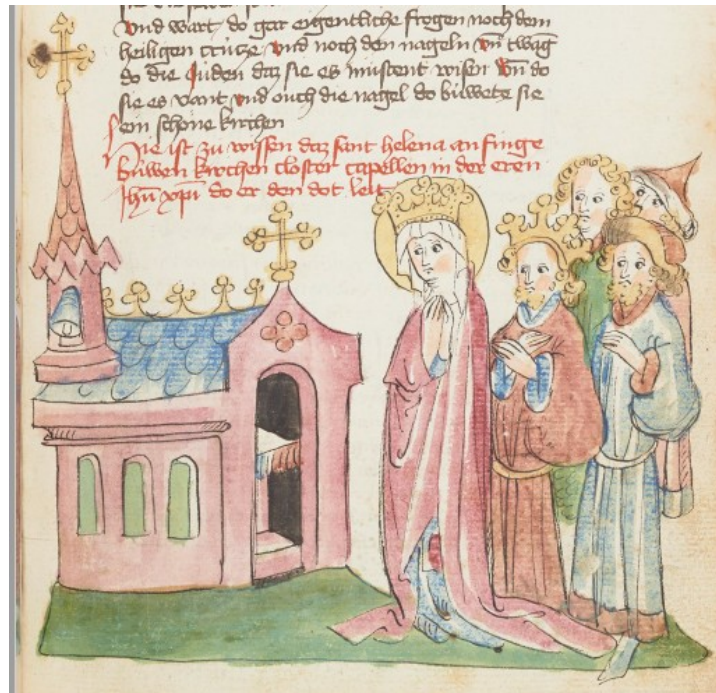 vnd wart do gar eigentliche fregen noch dem
heiligen crütze vnd noch den nageln vn̄ twag
do die Juden daz sie es mustent wisen vn̄ do
sie es vant vnd ouch die nagel do buwete sie
ein schone kirchen
Hie ist zu wissen daz sant helena an finge
buwen kirchen closter capellen in der eren
Jhu xpi do er den dot leit